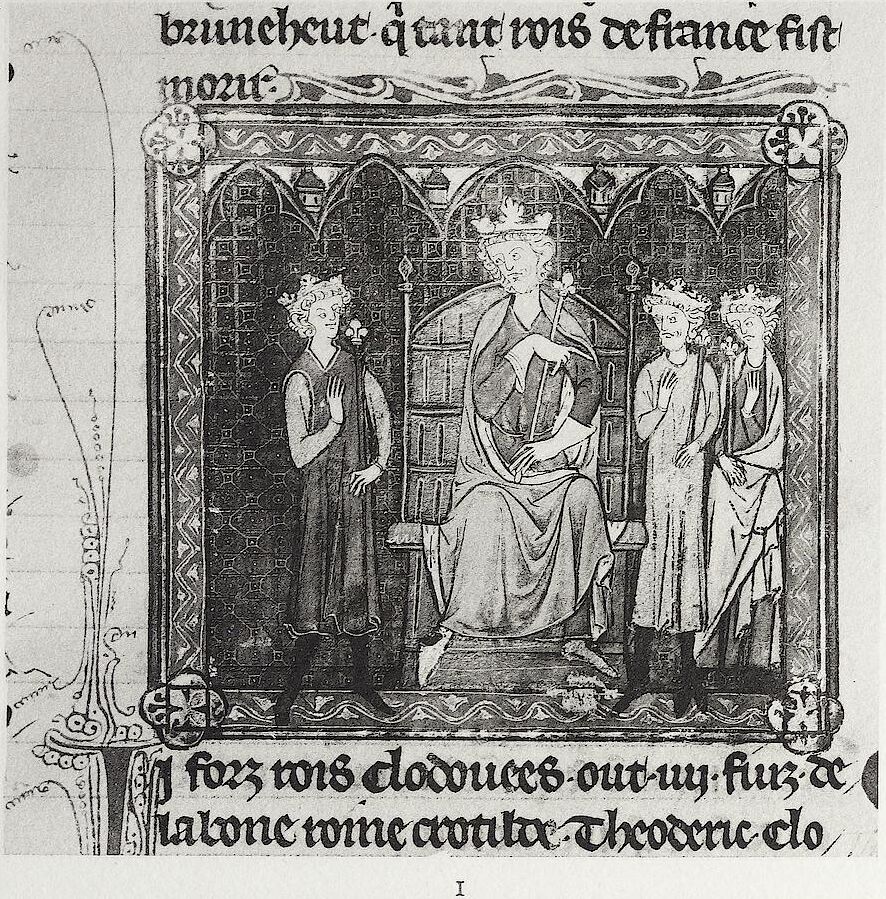 bruneheut · q̃ tant rois de france fist
morir·
I forz rois clodouees · out · iiij · fiuz · de
la bone roine crotilde · Theoderic · clo
I